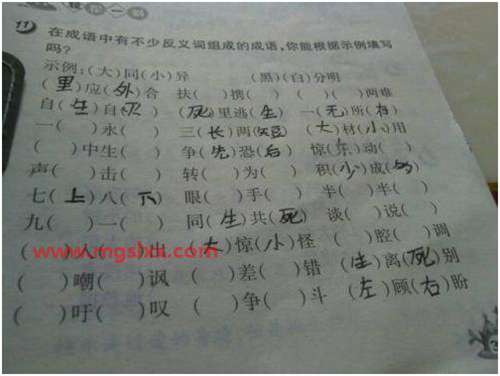 11 在成语中有不少反义词组成的成语,你能根据示例填写
吗?
示例:(大)同(小)异 (黑)(白)分明
(里)应(外)合 扶( )携( ) ( )( )两难
自(生)自(灭) (死)里逃(生) 一(无)所( )
一( )永( ) 三(长)两(短) (大)材(小)用
( )中生( ) 争(先)恐(后) 惊( )动( )
声( )击( ) 转( )为( ) 积(小)成(多)
七(上)八(下) 眼( )手( ) 半( )半( )
九( )一( ) 同(生)共(死) 谈( )说( )
( )人( )出 (大)惊(小)怪 ( )腔( )调
( )嘲( )讽 ( )差( )错 (生)离(死)别
( )吁( )叹 ( )争( )斗 (左)顾(右)盼